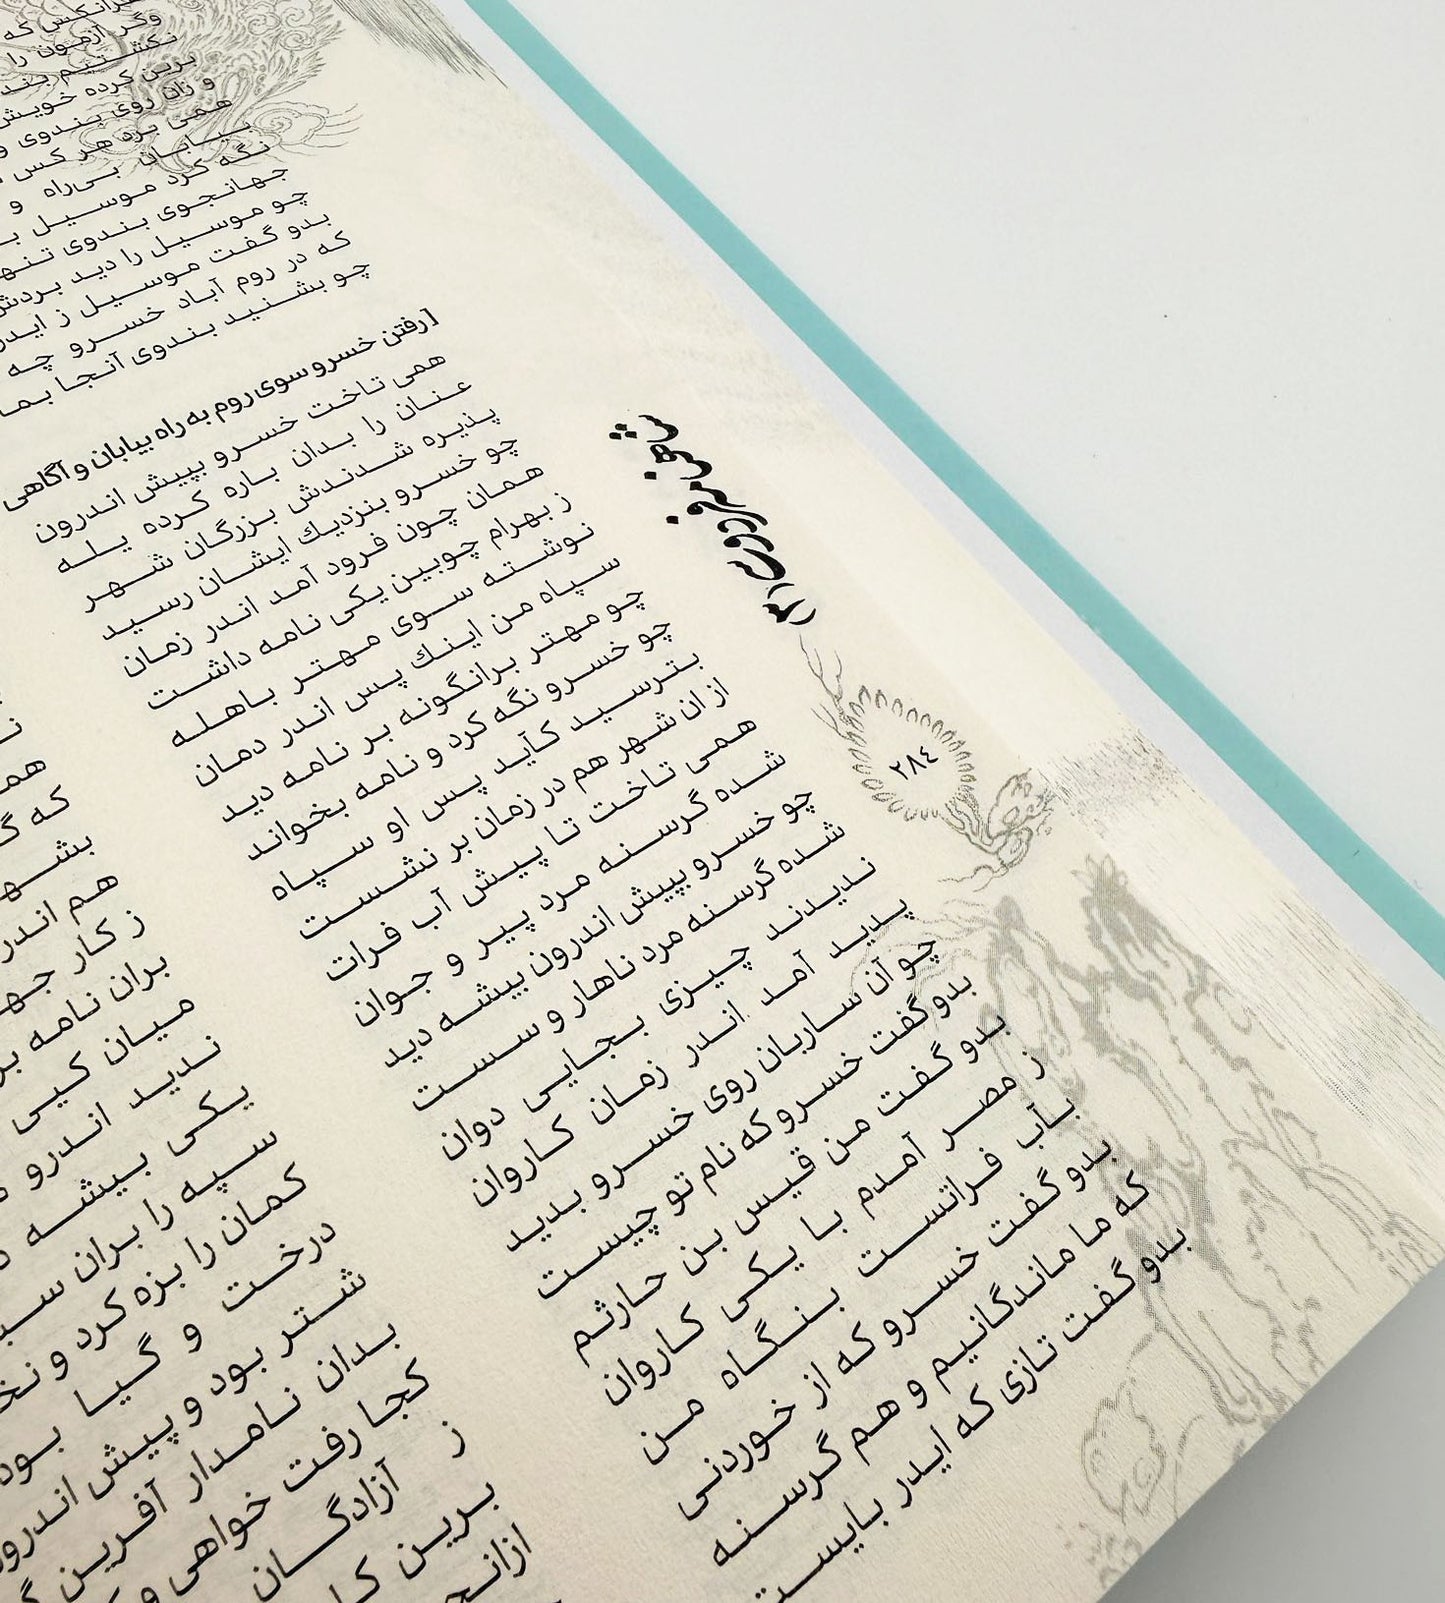 هرانکس که
وگر آزمون را
نکشتیم بند
برین کرده خویش
و زان روی بندوی و
همی برد هر کس
بیابان بی‌راه و
نگه کرد موسیل
جهانجوی بندوی تنها
چو موسیل را دید بردش
بدو گفت موسیل ز ایدر
که در روم آباد خسرو چه
چو بشنید بندوی آنجا بما
[رفتن خسرو سوی روم به راه بیابان و آگاهی
همی تاخت خسرو بپیش اندرون
عنان را بدان باره کرده یله
پذیره شدندش بزرگان شهر
چو خسرو بنزدیك ایشان رسید
همان چون فرود آمد اندر زمان
ز بهرام چوبین یکی نامه داشت
نوشته سوی مهتر باهله
سپاه من اینك پس اندر دمان
چو مهتر برانگونه بر نامه دید
چو خسرو نگه کرد و نامه بخواند
بترسید کآید پس او سپاه
از ان شهر هم در زمان بر نشست
همی تاخت تا پیش آب فرات
شده گرسنه مرد پیر و جوان
چو خسرو بپیش اندرون بیشه دید
شده گرسنه مرد ناهار و سست
ندیدند چیزی بجایی دوان
پدید آمد اندر زمان کاروان
چو آن ساربان روی خسرو بدید
بدو گفت خسرو که نام تو چیست
بدو گفت من قیس بن حارثم
ز مصر آمدم با یکی کاروان
بآب فراتست بنگاه من
بدو گفت خسرو که از خوردنی
که ما ماندگانیم و هم گرسنه
بدو گفت تازی که ایدر بایست
هم
که گ
بشه
هم اندر
ز کار جه
بران نامه بر
میان کیی
ندید اندرو
یکی بیشه
سپه را بران سب
کمان را بزه کرد و نخ
درخت و گیا بود
شتر بود و پیش اندرو
بدان نامدار آفرین
کجا رفت خواهی و
ز آزادگان
برین
ازانج
شاهنامه فردوسی/۲
٢٨٤